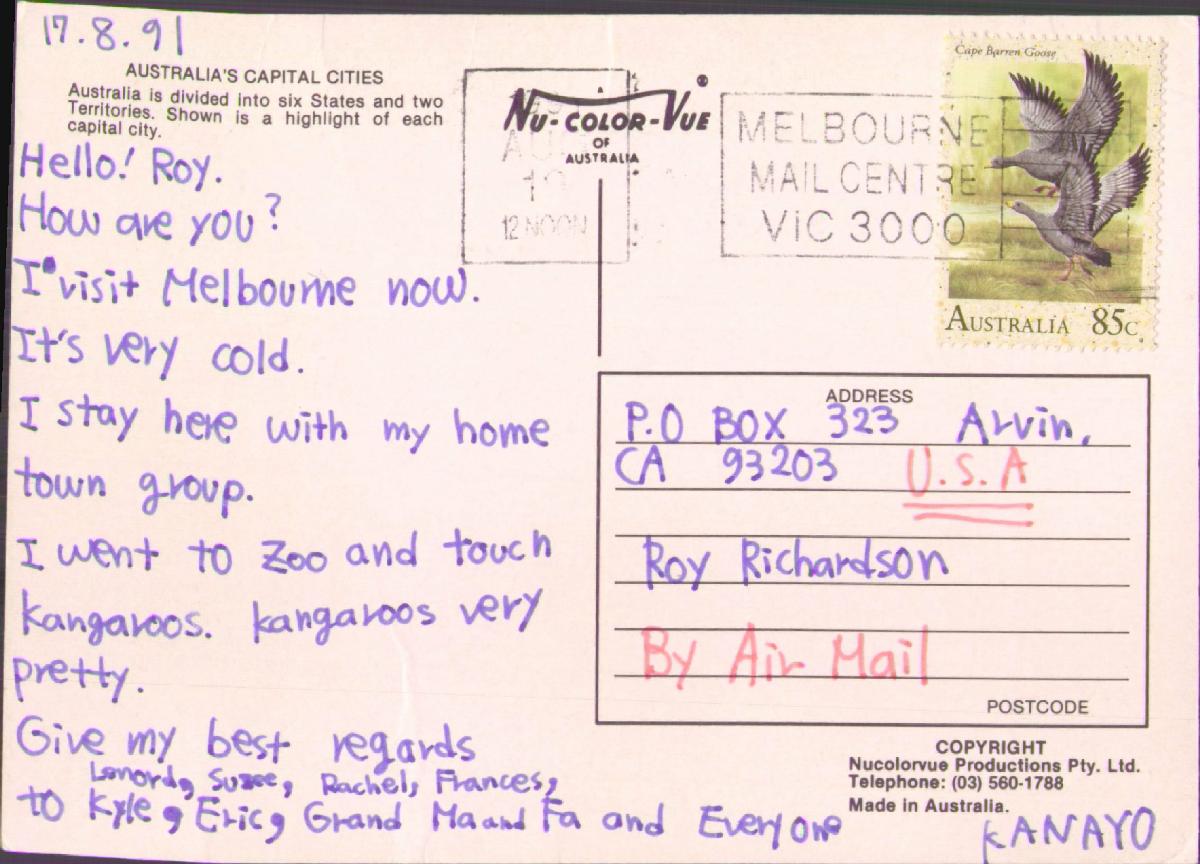 17.8.91
AUSTRALIA'S CAPITAL CITIES
Australia is divided into six States and two
Territories. Shown is a highlight of each
capital city.
Hello! Roy.
How are you?
I visit Melbourne now.
It's very cold.
I stay here with my home
town group.
I went to Zoo and touch
kangaroos. kangaroos very
pretty.
Give my best regards
Lenord, Suzee, Rachel, Frances,
to Kyle, Eric, Grand Ma and Fa and Everyone
KANAYO
NU-COLOR-VUE
OF
AUSTRALIA
AUG
12 NOON
MELBOURNE
MAIL CENTRE
VIC 3000
Cape Barren Goose
AUSTRALIA 85c
ADDRESS
P.O BOX 323 Arvin,
CA 93203 U.S.A
Roy Richardson
By Air Mail
POSTCODE
COPYRIGHT
Nucolorvue Productions Pty. Ltd.
Telephone: (03) 560-1788
Made in Australia.